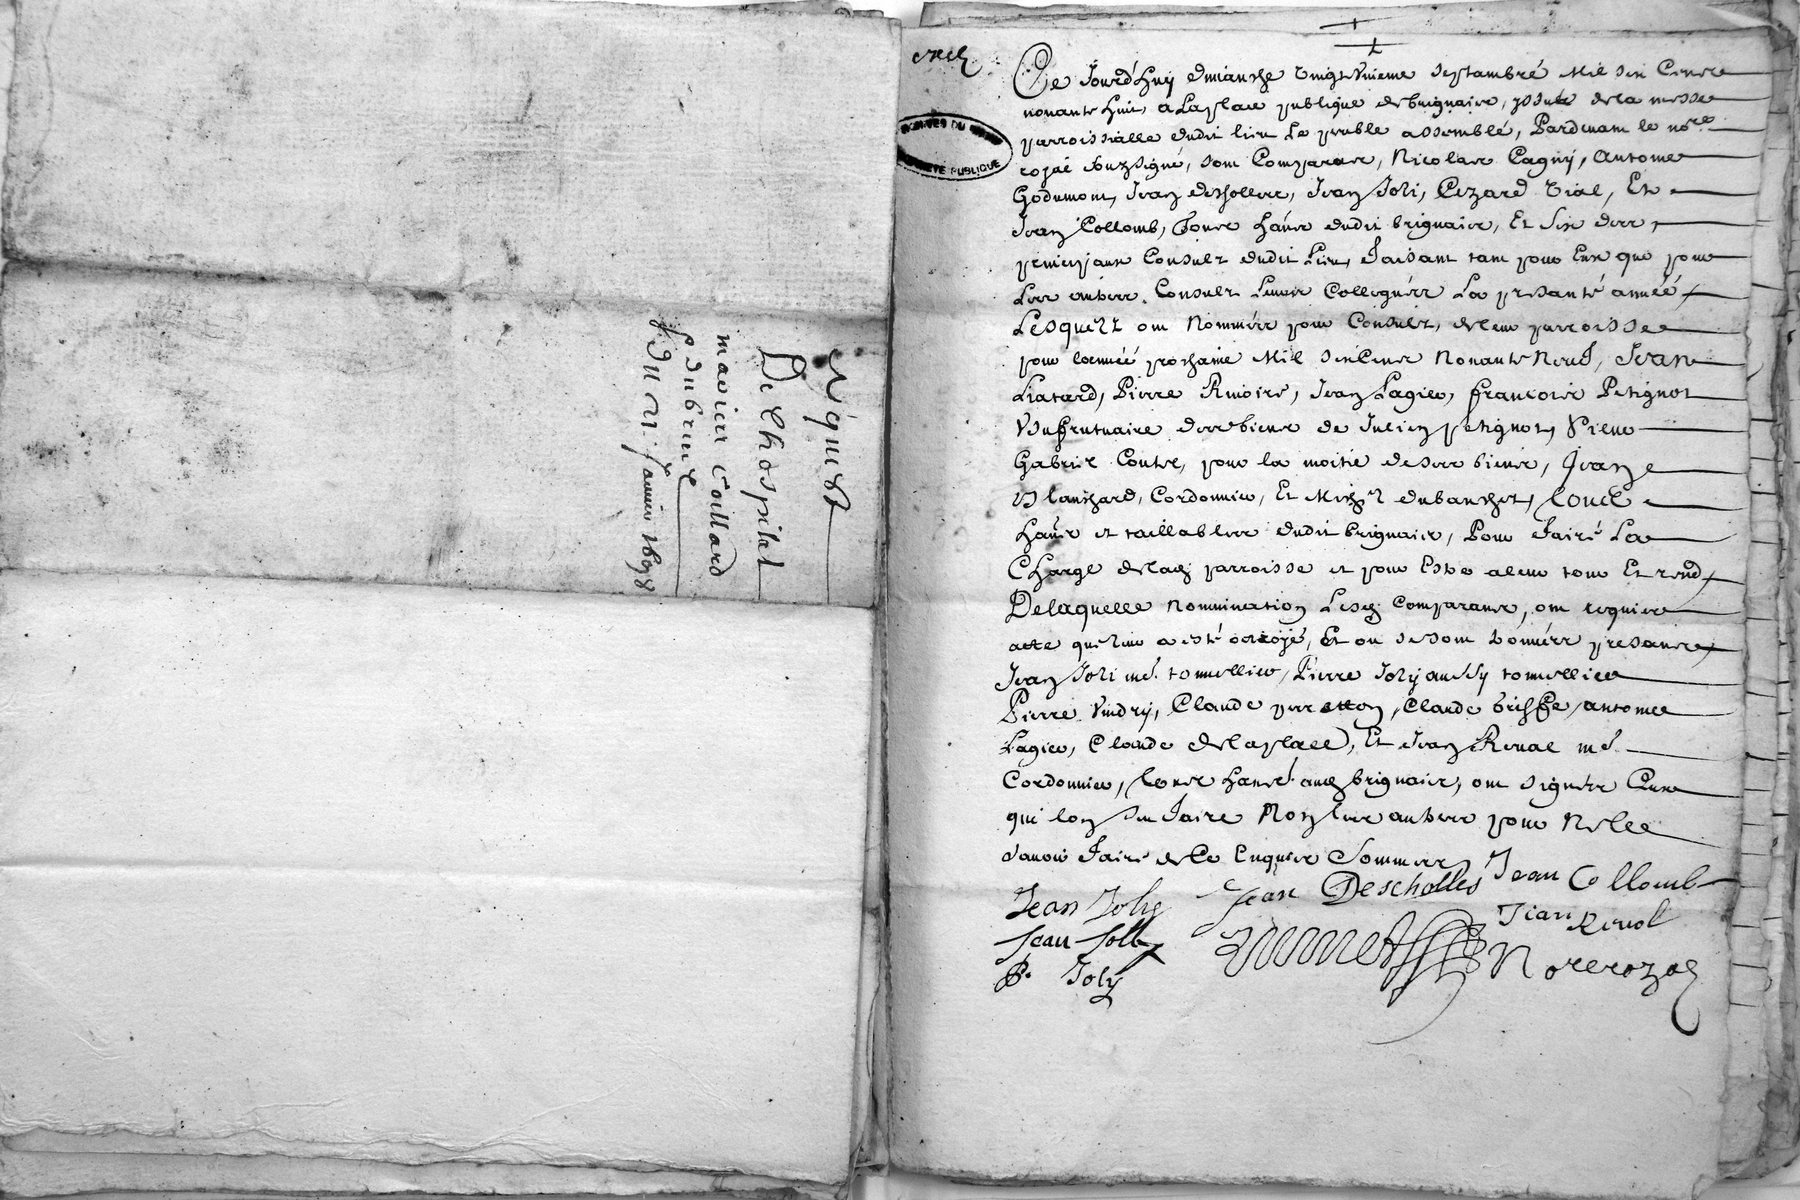 Requeste
De Lhospital
mavier Coillard
& dubreul
du 21 janvier 1698
ARCHIVES DU RHONE
PROPRIETE PUBLIQUE
Ce Jourd'huy dimanche vingt Unieme septambré Mil six Cents
nonante huit, a La place publique de brignais, yssue de la messe
parroissialle dudit lieu Le peuble assemblé, Pardevant le nore
royal soubsigné, sont Comparus, Nicolas Pagny, Antoine
Godumont, Jean descholles, Jean Joli, Cezard Vial, Et
Jean Collomb, Tous hans dudit brignais, Et six des
principaux Consulz dudit Lieu, faisant tant pour Eux que pour
Les autres Consulz Leurs Collegues La presanté année,
Lesquelz ont Nommés pour Consulz, de leur parroisse
pour l'année prochaine Mil six Cents Nonante Neuf, Jean
Liatard, Pierre Rivoire, Jean Lagier, françois Petignot
Usufrutuaire des biens de Julien petignot, Pierre
Gabriel Coute, pour la moitié de ses biens, Jean
Blanchard, Cordonnier, Et Michel dubanchet, Tous
hans et taillables dudit brignais, Pour faire La
Charge de lad parroisse et pour Estre a leur tour Et rend,
De laquelle Nommination Lesd Comparants, ont requis
acte que leur a esté octroyé, Et ou se sont trouvés presants,
Jean Joli md tonnellier, Pierre Joly aussy tonnellier
Pierre Vindry, Claude perretton, Claude briffe, antoine
Lagier, Claude delaplace, Et Jean Revol md
Cordonnier, Tous hans aud brignais, ont signés Ceux
qui lon sceu faire Non les autres pour Ne le
scavoir faire de Ce Enquis Sommés
Jean Joly Jean Descholles Jean Collomb
Jean Jolly Jean Revol
P. Joly Nore royal